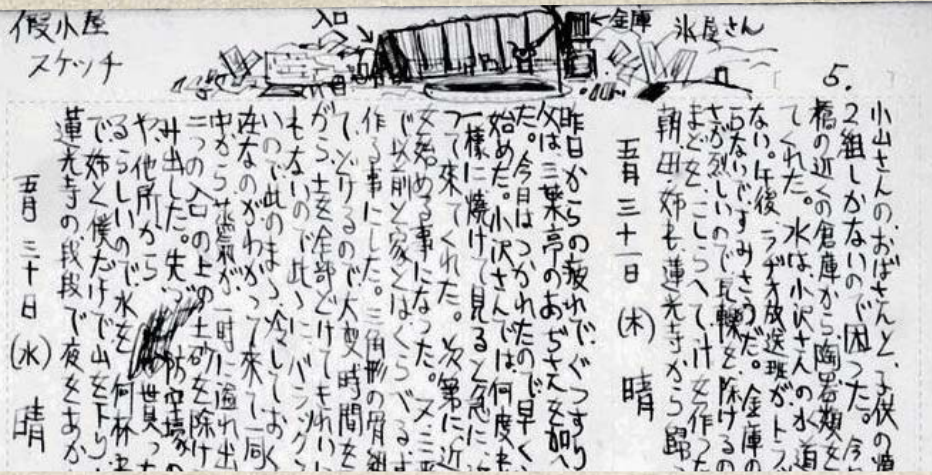 假小屋
スケッチ
入口
←金庫
氷屋さん
5.
小山さんのおばさんと、子供の
2組しかないので困った。今
橋の近くの倉庫から陶器類を
てくれた。水は小沢さんの水道
ない。午後、ラヂオ放送班がトラ
らないですみさうだ。金庫の
さが烈しいので瓦礫を除けるの
まどを、こしらへて、汁を作った
朝、田姉も蓮光寺から歸
五月三十一日(木)晴
昨日からの疲れで、ぐつすり
父は三葉亭のおぢさんを加へ
た。今日はつかれたので早く、
始めた。小沢さんでは何度も
一様に焼けて見ると急に、
つて来てくれた。次第に近
を始める事になった。
で以前と家とはくらべる
作る事にした。三角形の骨組
て、どけるので大変時間を
がら、土を全部どけてきれいに
もないので此のまゝ冷しておく
在なのがわかって来て一同
中から蒸氣が一時に溢れ出
二つの入口の上の土砂を除け
み出した。先づ防空壕の
や、他所から
るらしいので、水を何杯
で姉と僕だけで山を下り
蓮光寺の段段で夜をあか
五月三十日(水)晴